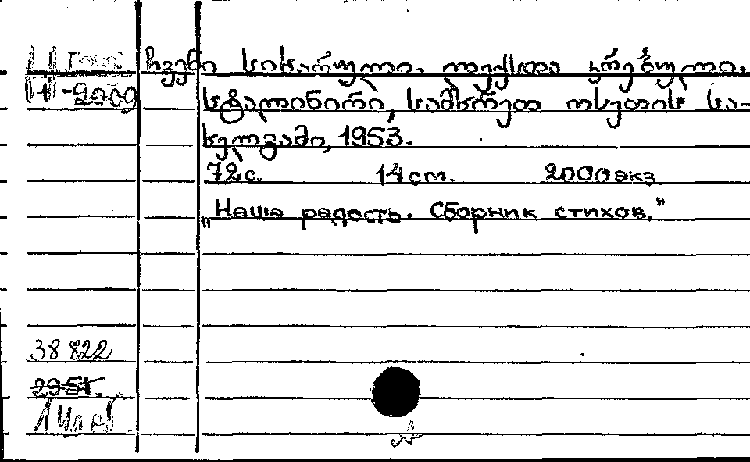 ჩვენი სიხარული. ლექსთა კრებული.
სტალინირი, სამხრეთ ოსეთის სა-
ხელგამი, 1953.
72с. 14 см. 2000 экз.
„Наша радость. Сборник стихов."
38 822
2951.